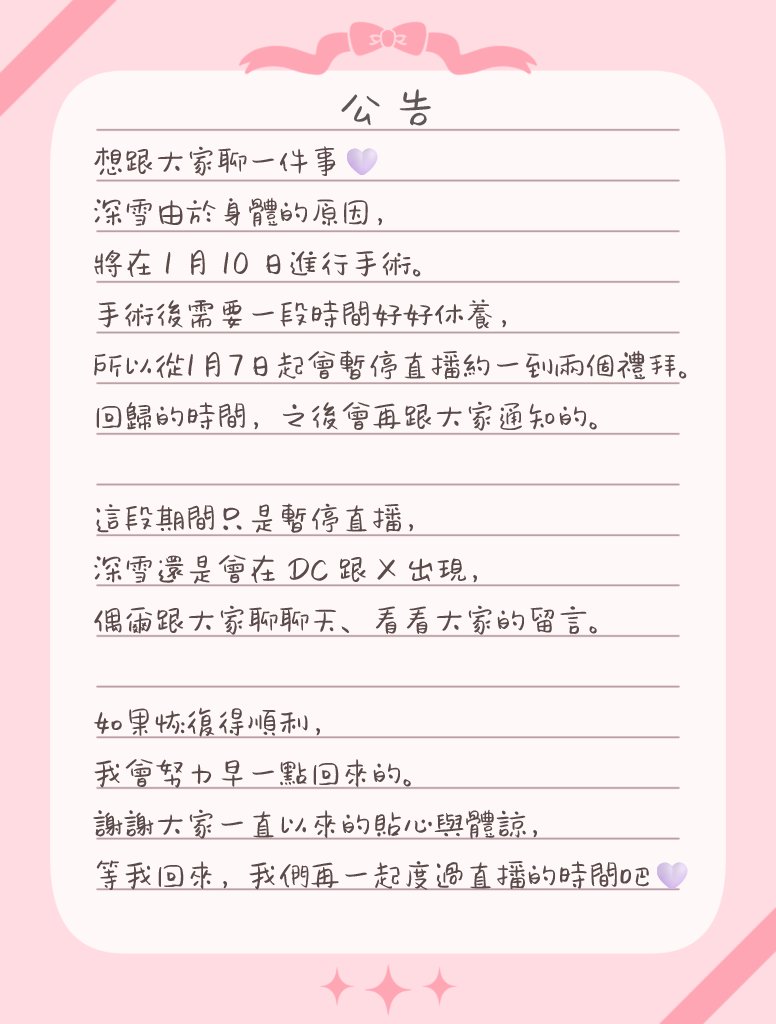 公告
想跟大家聊一件事💜
深雪由於身體的原因，
將在 1 月 10 日進行手術。
手術後需要一段時間好好休養，
所以從1月7日起會暫停直播約一到兩個禮拜。
回歸的時間，之後會再跟大家通知的。
這段期間只是暫停直播，
深雪還是會在 DC 跟 X 出現，
偶爾跟大家聊聊天、看看大家的留言。
如果恢復得順利，
我會努力早一點回來的。
謝謝大家一直以來的貼心與體諒，
等我回來，我們再一起度過直播的時間吧💜